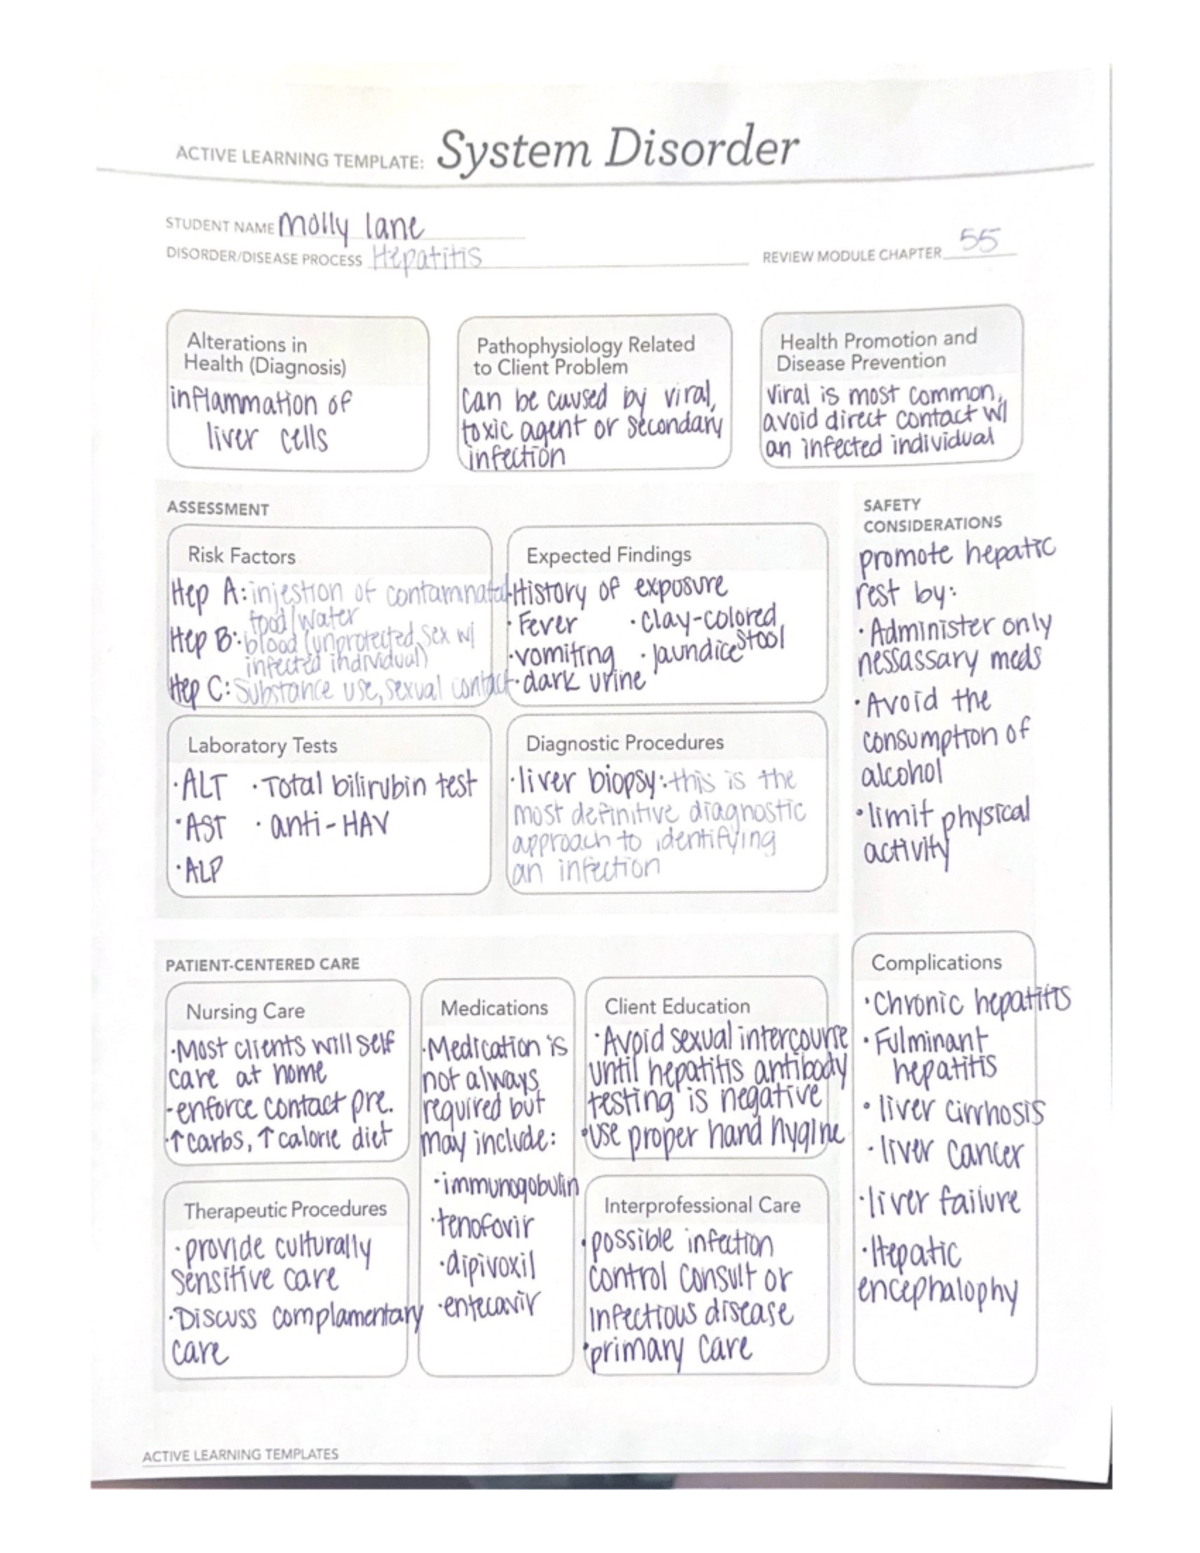 ACTIVE LEARNING TEMPLATE: System Disorder
STUDENT NAME Molly lane
DISORDER/DISEASE PROCESS Hepatitis
REVIEW MODULE CHAPTER 55
Alterations in
Health (Diagnosis)
inflammation of
liver cells
Pathophysiology Related
to Client Problem
can be caused by viral,
toxic agent or secondary
infection
Health Promotion and
Disease Prevention
Viral is most common,
avoid direct contact w/
an infected individual
ASSESSMENT
Risk Factors
Hep A: injestion of contamnated
food/water
Hep B: blood (unprotected sex w/
infected individual)
Hep C: Substance use, sexual contact
Expected Findings
·History of exposure
·Fever ·clay-colored
stool
·vomiting ·jaundice
·dark urine
Laboratory Tests
·ALT ·Total bilirubin test
·AST ·anti-HAV
·ALP
Diagnostic Procedures
·liver biopsy: this is the
most definitive diagnostic
approach to identifying
an infection
SAFETY
CONSIDERATIONS
promote hepatic
rest by:
·Administer only
nessassary meds
·Avoid the
consumption of
alcohol
·limit physical
activity
PATIENT-CENTERED CARE
Nursing Care
·Most clients will self
care at home
-enforce contact pre.
·↑carbs, ↑calorie diet
Medications
·Medication is
not always
required but
may include:
·immunogobulin
·tenofovir
·dipivoxil
·entecavir
Client Education
·Avoid sexual intercourse
until hepatitis antibody
testing is negative
·use proper hand hygine
Therapeutic Procedures
·provide culturally
sensitive care
·Discuss complamentary
care
Interprofessional Care
·possible infection
control consult or
infectious disease
·primary care
Complications
·Chronic hepatitis
·Fulminant
hepatitis
·liver cirrhosis
·liver cancer
·liver failure
·Hepatic
encephalophy
ACTIVE LEARNING TEMPLATES